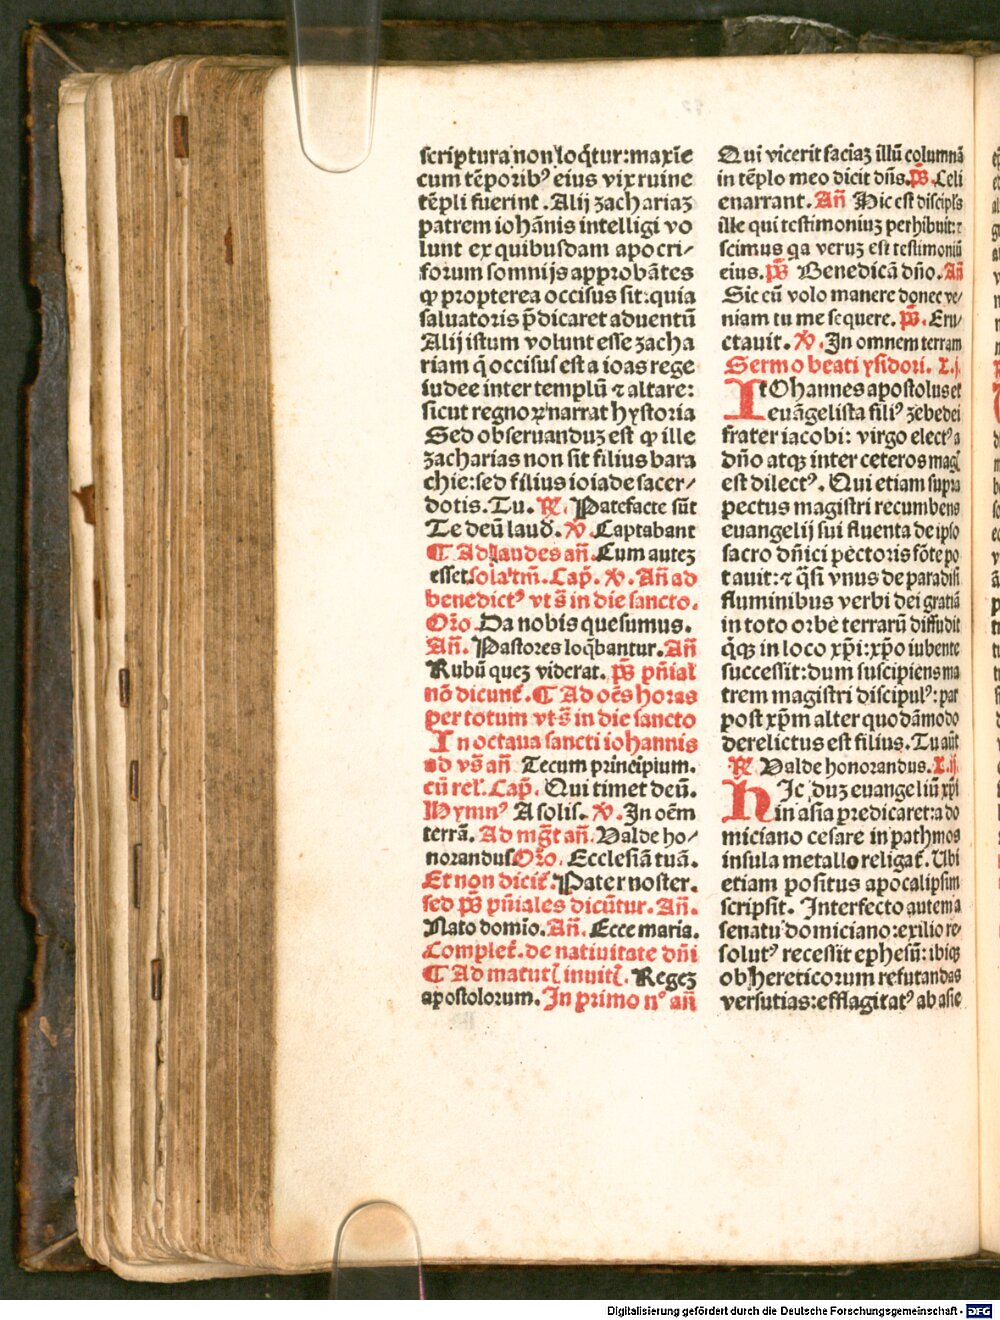 scriptura non loq̃tur:maxĩe
cum tẽporibꝰ eius vix ruine
tẽpli fuerint. Alij zachariaꝫ
patrem iohãnis intelligi vo
lunt ex quibusdam apocri/
forum somnijs approbãtes
ꝙ propterea occisus sit:quia
saluatoris p̃dicaret aduentũ
Alij istum volunt esse zacha
riam q̃ occisus est a ioas rege
iudee inter templũ ⁊ altare:
sicut regnoꝝ narrat hystoria
Sed obseruanduꝫ est ꝙ ille
zacharias non sit filius bara
chie:sed filius ioiade sacer/
dotis. Tu. ℟. Patefacte sũt
Te deũ laud. ℣. Captabant
¶ Ad laudes añ. Cum auteꝫ
esset. sola tm̃. Cap̃. ℣. Añ ad
benedictꝰ vt s̃ in die sancto.
Or̃o. Da nobis quesumus.
Añ. Pastores loq̃bantur. Añ
Rubũ queꝫ viderat. ps̃ pñial
nõ dicunt̃. ¶ Ad oẽs horas
per totum vt s̃ in die sancto
In octaua sancti iohannis
ad vs̃ añ Tecum principium.
cũ rel̃. Cap̃. Qui timet deũ.
Hymnꝰ A solis. ℣. In oẽm
terrã. Ad mg̃t añ. Valde ho/
norandus Or̃o. Ecclesiã tuã.
Et non dicit̃. Pater noster.
sed ps̃ pñiales dicũtur. Añ.
Nato domio. Añ. Ecce maria.
Complet̃. de natiuitate dñi
¶ Ad matut̃ inuit̃. Regeꝫ
apostolorum. In primo n° añ
Qui vicerit faciaꝫ illũ columnã
in tẽplo meo dicit dñs. ps̃. Celi
enarrant. Añ Hic est discipl's
ille qui testimoniuꝫ perhibuit:⁊
scimus qa veruꝫ est testimoniũ
eius. ps̃ Benedicã dño. Añ
Sic eũ volo manere donec ve/
niam tu me sequere. ps̃. Eru/
ctauit. ℣. In omnem terram
Sermo beati ysidori. L.j.
IOhannes apostolus et
euãgelista filiꝰ zebedei
frater iacobi: virgo electꝰ a
dño atqꝫ inter ceteros mag̃
est dilectꝰ. Qui etiam supra
pectus magistri recumbens
euangelij sui fluenta de ipso
sacro dñici pectoris fõte po
tauit:⁊ q̃si vnus de paradisi
fluminibus verbi dei gratiã
in toto orbe terrarũ diffudit
q̃qꝫ in loco xp̃i:xp̃o iubente
successit:dum suscipiens ma
trem magistri discipulꝰ:par
post xp̃m alter quodãmodo
derelictus est filius. Tu aũt
℟. Valde honorandus. L.ij.
HIc duꝫ euangeliũ xp̃i
in asia predicaret:a do
miciano cesare in pathmos
insula metallo religat̃. Ubi
etiam positus apocalipsim
scripsit. Interfecto autem a
senatu domiciano:exilio re/
solutꝰ recessit ephesũ:ibiqꝫ
ob hereticorum refutandas
versutias:efflagitatꝰ ab asie
Digitalisierung gefördert durch die Deutsche Forschungsgemeinschaft - DFG